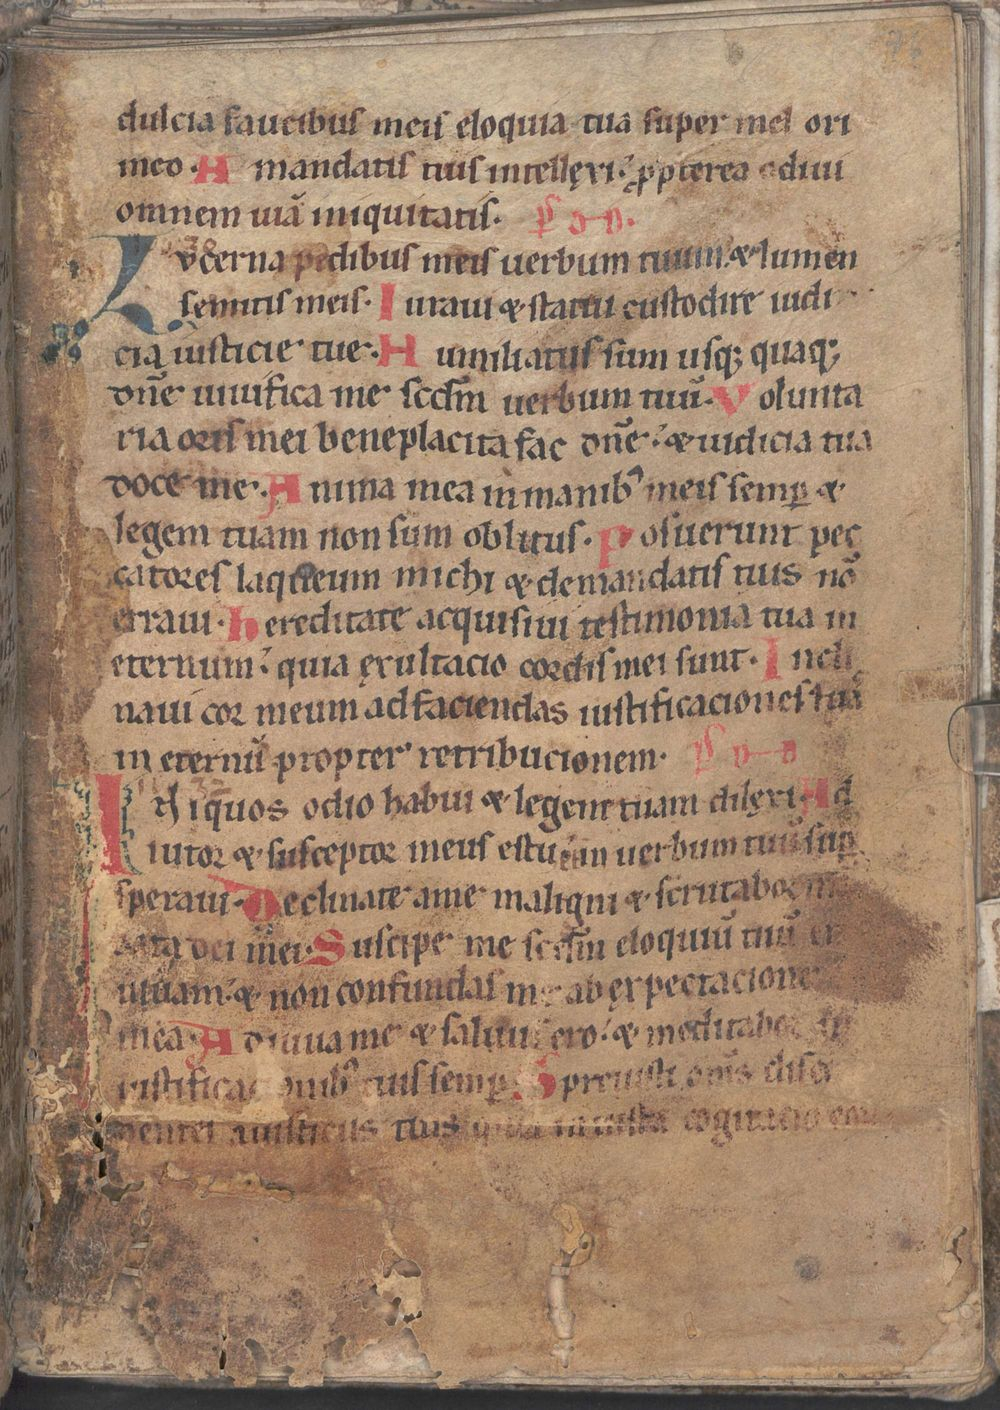 76
dulcia faucibus meis eloquia tua super mel ori
meo. A mandatis tuis intellęxi: ꝓpterea odiui
omnem uiā iniquitatis.
Lvcerna pedibus meis uerbum tuum: & lumen
semitis meis. Iuraui & statui custodire iudi
cia iusticie tue. Humiliatus sum usq; quaq;
dn̄e uiuifica me scd̄m uerbum tuū. Volunta
ria oris mei beneplacita fac dn̄e: & iudicia tua
doce me. Anima mea in manibꝰ meis semꝑ &
legem tuam non sum oblitus. Posuerunt pec
catores laqueum michi & de mandatis tuis nō
erraui. hereditate acquisiui testimonia tua in
eternum: quia ęxultacio cordis mei sunt. Incli
naui cor meum ad faciendas iustificaciones tuas
in eternū propter retribucionem.
Iniquos odio habui & legem tuam dilęxi. Ad
iutor & susceptor meus es tu & in uerbum tuū sup
speraui. Declinate a me maligni & scrutabor
data dei mei. Suscipe me scd̄m eloquiū tuū et
uiuam: & non confundas me ab ęxpectacione
mea. Adiuua me & saluus ero: & meditabor
iustificacionibꝰ tuis semꝑ. Spreuisti om̄s disce
dentes a iusticiis tuis quia iniusta cogitacio